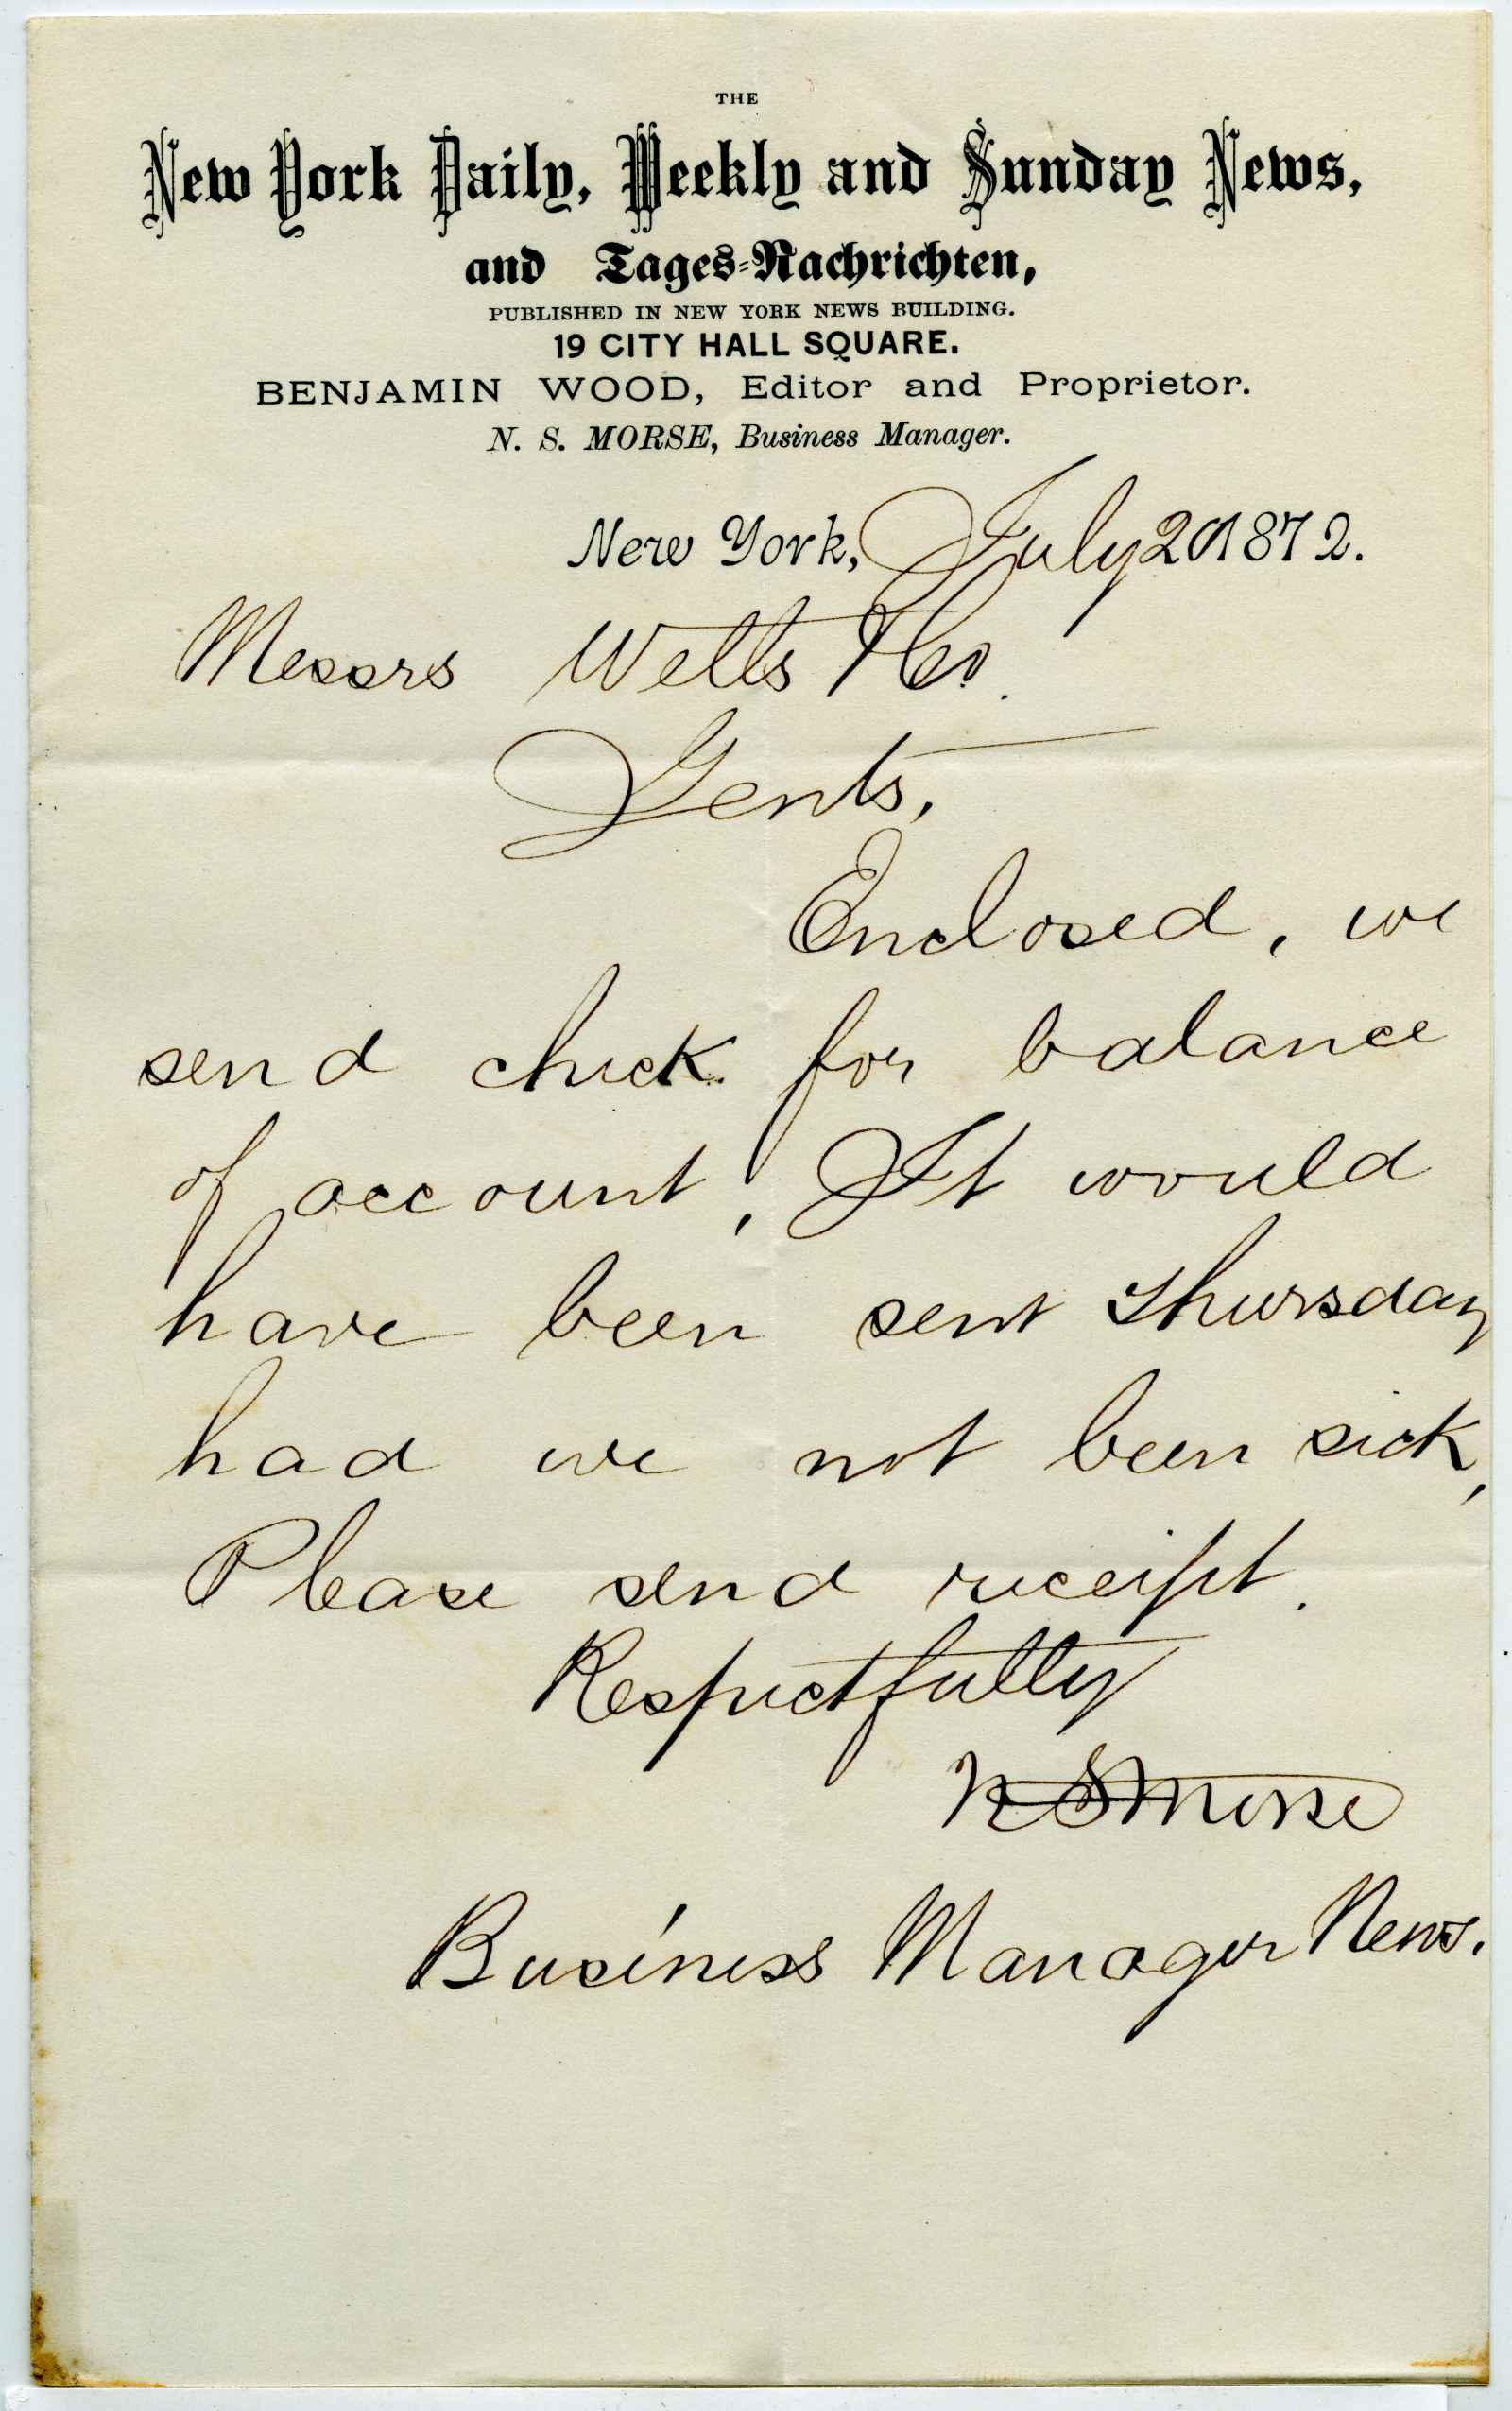 THE
New York Daily, Weekly and Sunday News,
and Tages=Nachrichten,
PUBLISHED IN NEW YORK NEWS BUILDING.
19 CITY HALL SQUARE.
BENJAMIN WOOD, Editor and Proprietor.
N. S. MORSE, Business Manager.
New York, July 20 1872.
Messrs Wells & Co.
Gents,
Enclosed, we
send check for balance
of account, It would
have been sent Thursday
had we not been sick,
Please send receipt.
Respectfully
N S Morse
Business Manager News.